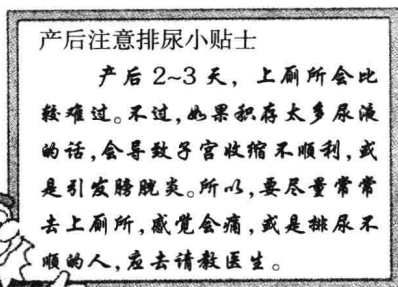 产后注意排尿小贴士
产后2~3天，上厕所会比
较难过。不过，如果积存太多尿液
的话，会导致子宫收缩不顺利，或
是引发膀胱炎。所以，要尽量常常
去上厕所，感觉会痛，或是排尿不
顺的人，应去请教医生。